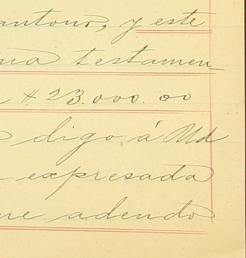 antono, y este
na testamen
$23.000.00
digo, á Ud
expresada
me adendo